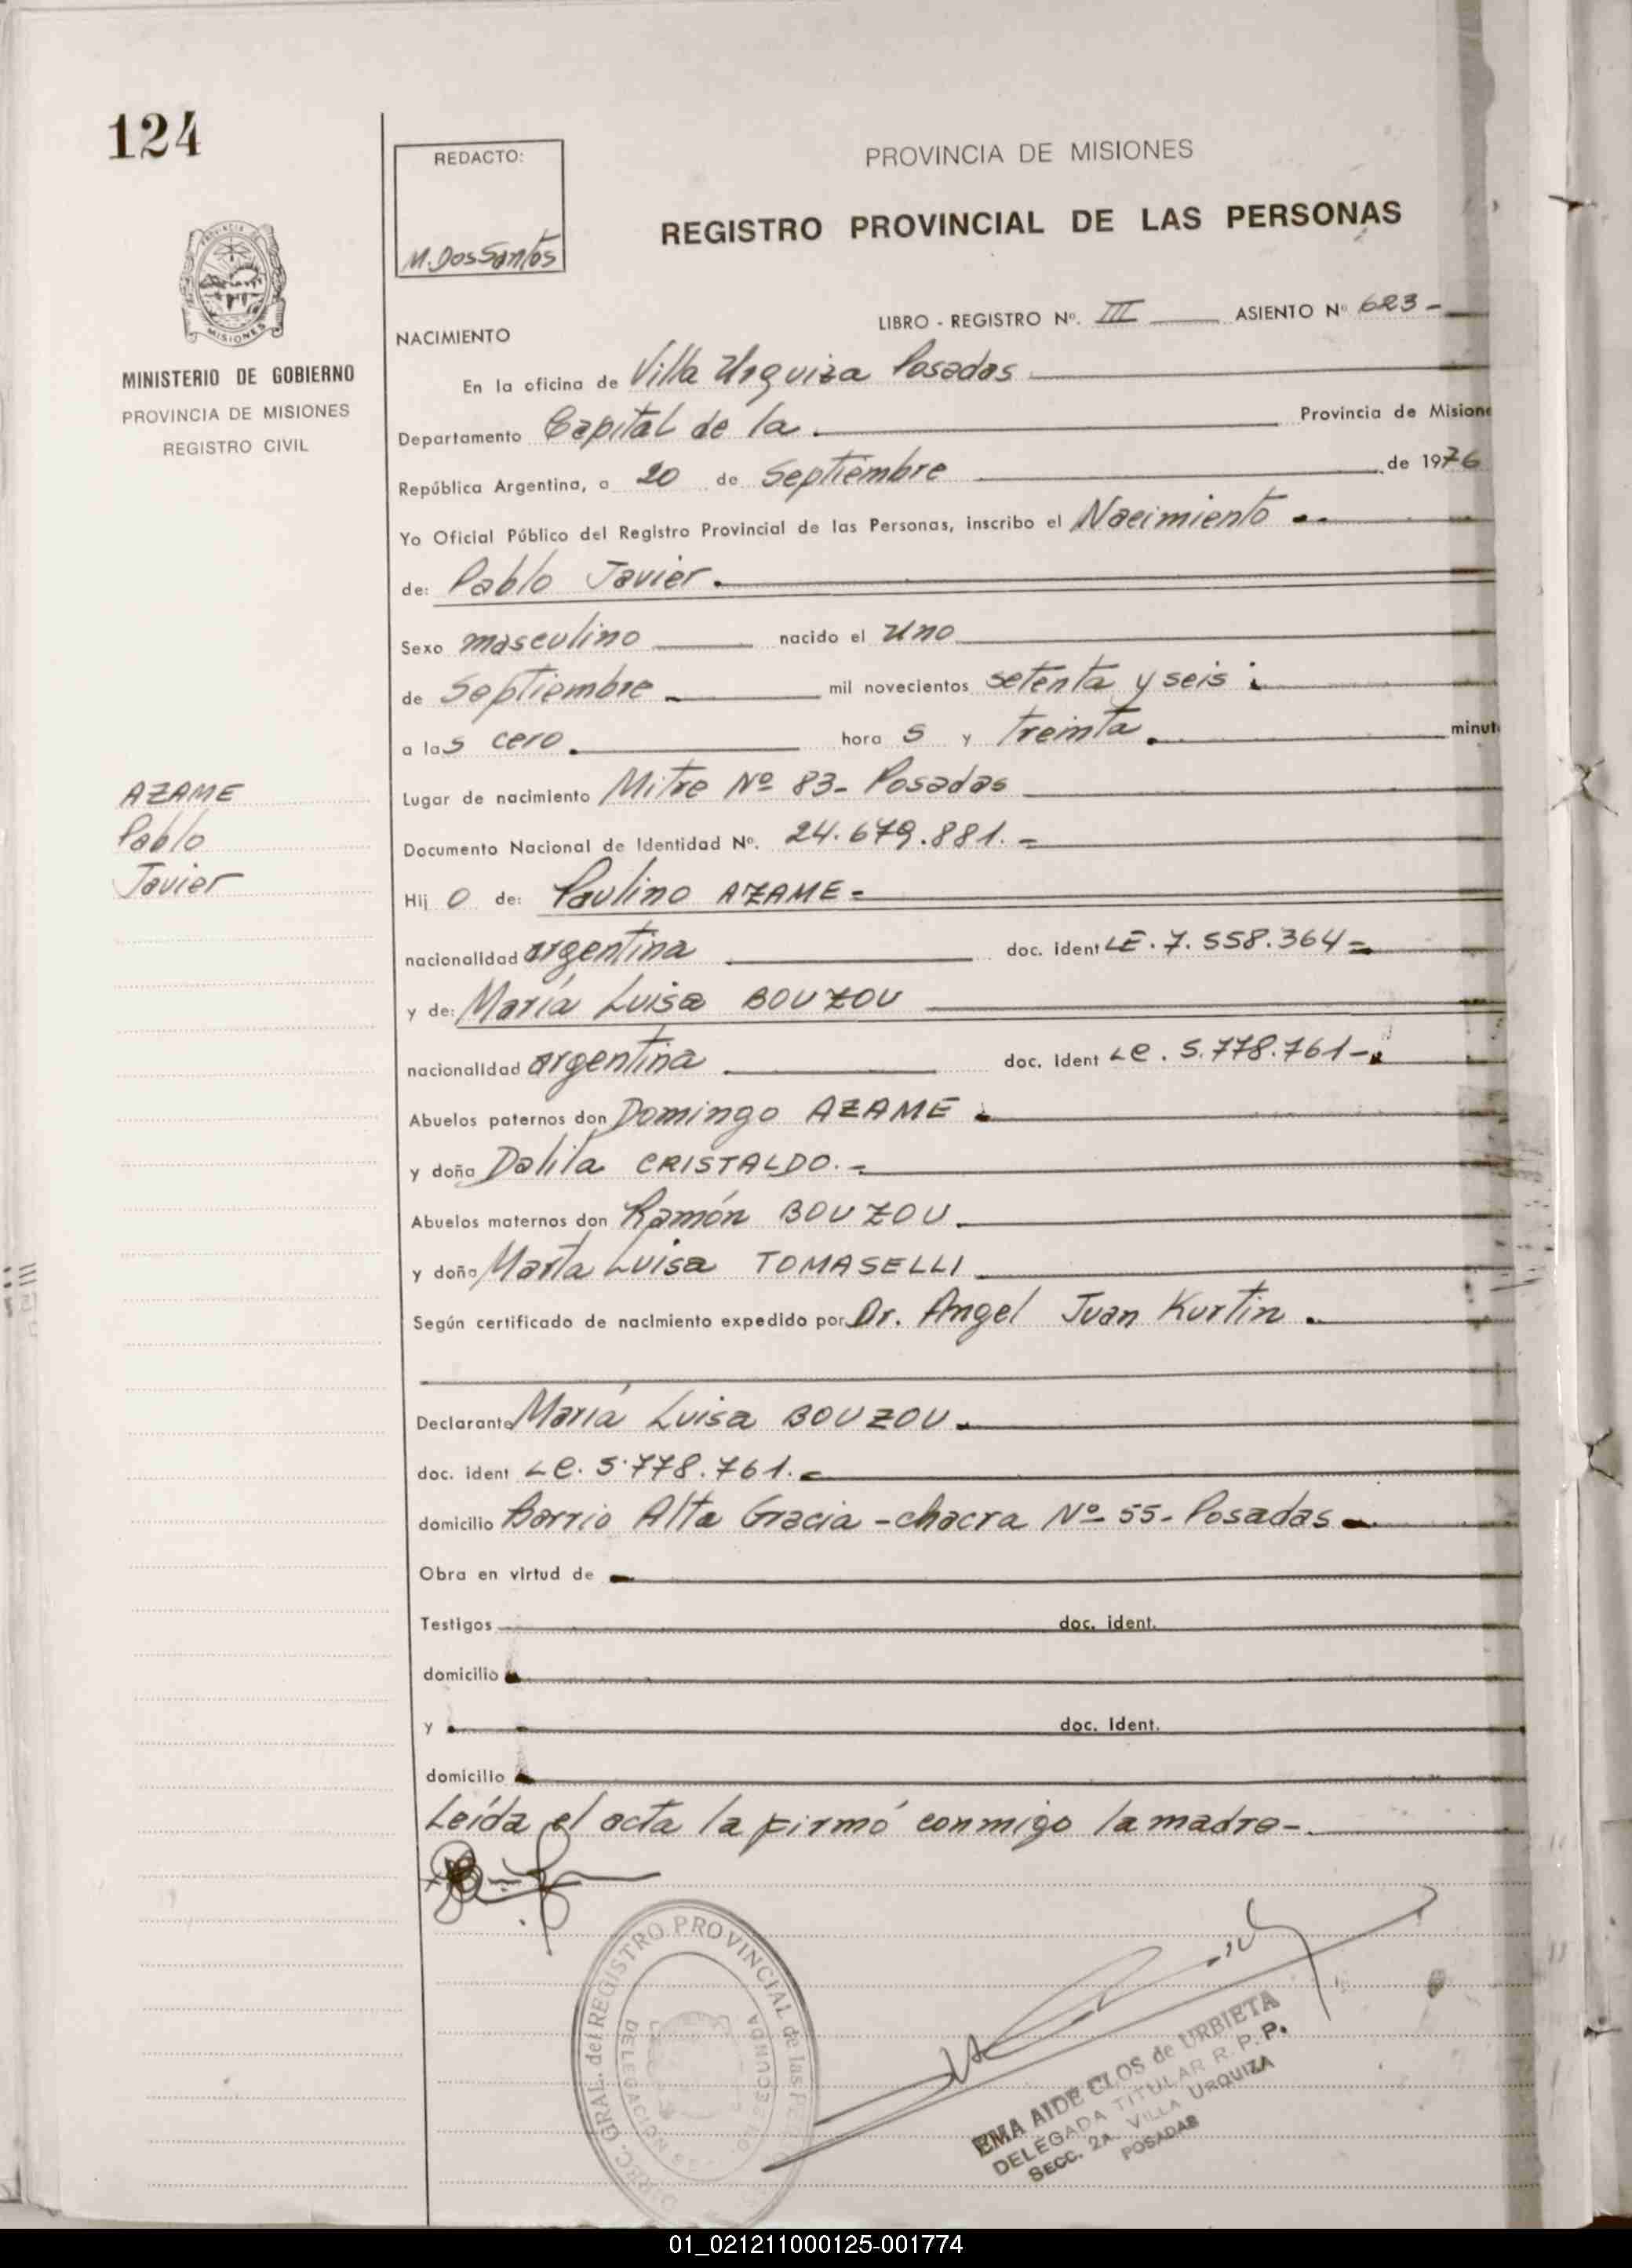 124
REDACTO:
M. Dos Santos
PROVINCIA DE MISIONES
REGISTRO PROVINCIAL DE LAS PERSONAS
MINISTERIO DE GOBIERNO
PROVINCIA DE MISIONES
REGISTRO CIVIL
LIBRO - REGISTRO Nº. III ASIENTO Nº 623 -
NACIMIENTO
En la oficina de Villa Urquiza Posadas
Departamento Capital de la. Provincia de Misione
República Argentina, a 20 de Septiembre de 1976
Yo Oficial Público del Registro Provincial de las Personas, inscribo el Nacimiento
de: Pablo Javier.
Sexo masculino nacido el uno
de Septiembre mil novecientos setenta y seis
a las cero. hora s y treinta. minut
Lugar de nacimiento Mitre Nº 83- Posadas
Documento Nacional de Identidad Nº. 24.679.881.-
AZAME
Pablo
Javier
Hij o de: Paulino AZAME-
nacionalidad argentina doc. ident LE. 7.558.364-
y de: María Luisa BOUZOU
nacionalidad argentina doc. Ident Le. 5.778.761-
Abuelos paternos don Domingo AZAME
y doña Dalila CRISTALDO.-
Abuelos maternos don Ramón BOUZOU.
y doña Marta Luisa TOMASELLI
Según certificado de nacimiento expedido por Dr. Angel Juan Kurtin.
Declarante María Luisa BOUZOU.
doc. ident Le. 5.778.761.-
domicilio Barrio Alta Gracia - chacra Nº 55- Posadas
Obra en virtud de
Testigos doc. ident.
domicilio
y doc. Ident.
domicilio
Leída el acta la firmó conmigo la madre-.
DIREC. GRAL. del REGISTRO PROVINCIAL de las
DELEGACION SEGUNDA
EMA AIDE CLOS de URBIETA
DELEGADA TITULAR R. P. P.
SECC. 2A VILLA URQUIZA
POSADAS
01_021211000125-001774